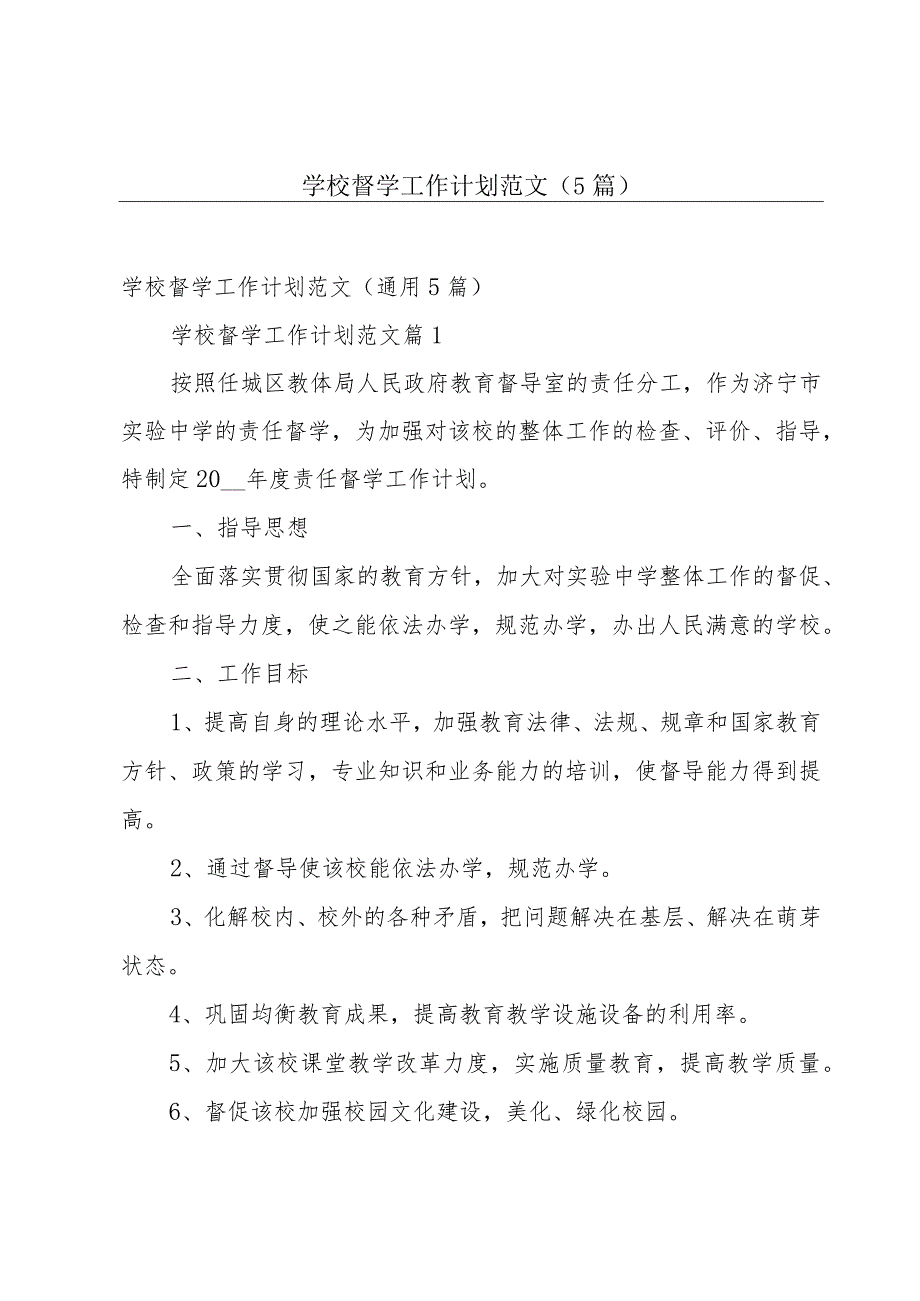 学校督学工作计划范文（5 篇）
学校督学工作计划范文（通用 5 篇）
学校督学工作计划范文篇 1
按照任城区教体局人民政府教育督导室的责任分工，作为济宁市
实验中学的责任督学，为加强对该校的整体工作的检查、评价、指导，
特制定 20__年度责任督学工作计划。
一、指导思想
全面落实贯彻国家的教育方针，加大对实验中学整体工作的督促、
检查和指导力度，使之能依法办学，规范办学，办出人民满意的学校。
二、工作目标
1、提高自身的理论水平，加强教育法律、法规、规章和国家教育
方针、政策的学习，专业知识和业务能力的培训，使督导能力得到提
高。
2、通过督导使该校能依法办学，规范办学。
3、化解校内、校外的各种矛盾，把问题解决在基层、解决在萌芽
状态。
4、巩固均衡教育成果，提高教育教学设施设备的利用率。
5、加大该校课堂教学改革力度，实施质量教育，提高教学质量。
6、督促该校加强校园文化建设，美化、绿化校园。